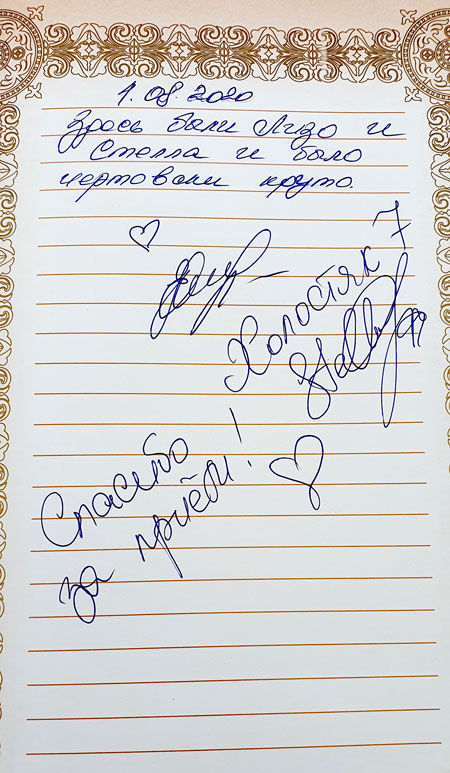 1.08.2020
Здесь были Лиза и
Стелла и было
чертовски круто.
Холостяк 7
Спасибо
за приём!